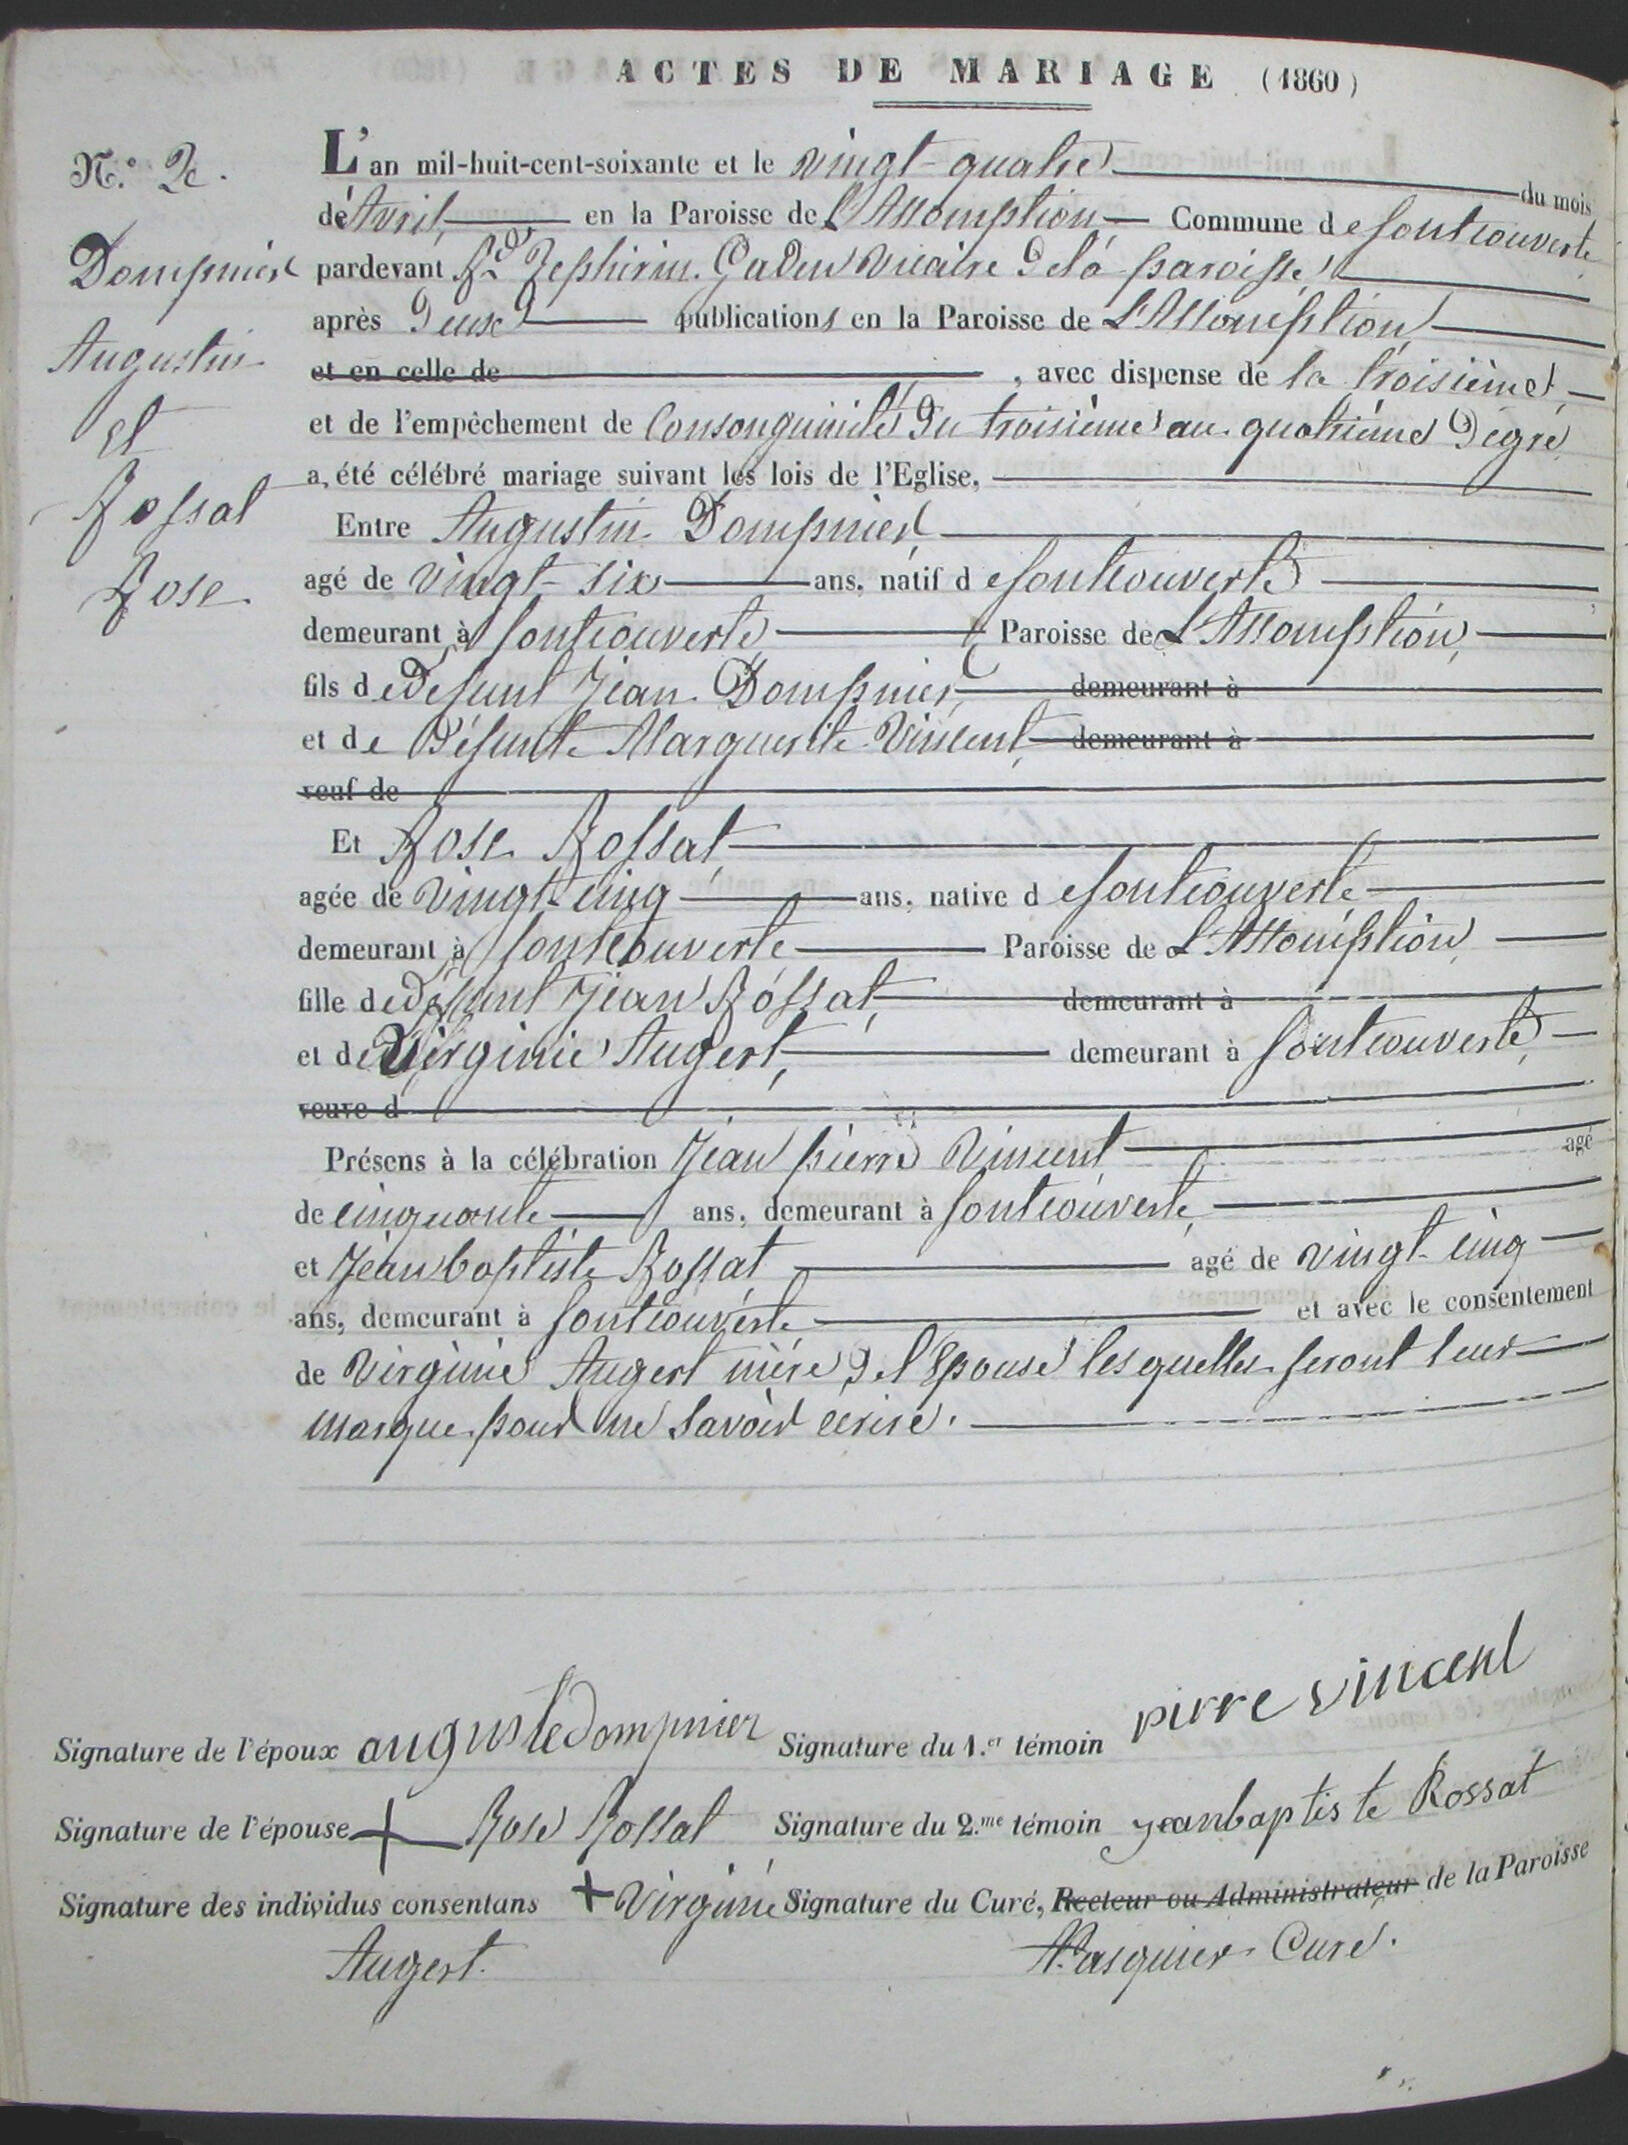 ACTES DE MARIAGE (1860)
N.° 2e.
Dompnier
Augustin
et
Rossat
Rose
L'an mil-huit-cent-soixante et le vingt-quatre du mois
de Avril, en la Paroisse de L'Assomption Commune de fontcouverte
pardevant Rd Zephirin Gaden vicaire de la paroisse,
après deux publications en la Paroisse de L'Assomption
et en celle de , avec dispense de la troisième,
et de l'empêchement de Consanguinité du troisième au quatrième Degré
a, été célébré mariage suivant les lois de l'Eglise,
Entre Augustin Dompnier
agé de vingt-six ans, natif de fontcouverte
demeurant à fontcouverte Paroisse de L'Assomption,
fils de défunt Jean Dompnier, demeurant à
et de Défunte Marguerite Vincent, demeurant à
veuf de
Et Rose Rossat,
agée de vingt-cinq ans, native de fontcouverte
demeurant à fontcouverte Paroisse de L'Assomption,
fille de défunt Jean Rossat, demeurant à
et de Virginie Augert, demeurant à fontcouverte,
veuve d
Présens à la célébration Jean pierre Vincent agé
de cinquante ans, demeurant à fontcouverte,
et Jean baptiste Rossat agé de vingt-cinq
ans, demeurant à fontcouverte et avec le consentement
de Virginie Augert mère de l'Epouse lesquelles feront leur
marque pour ne savoir ecrire.
Signature de l'époux auguste dompnier Signature du 1.er témoin pirre vincent
Signature de l'épouse + Rose Rossat Signature du 2.me témoin jeanbaptiste Rossat
Signature des individus consentans + Virginie Signature du Curé, Recteur ou Administrateur de la Paroisse
Augert. Pasquier Curé.